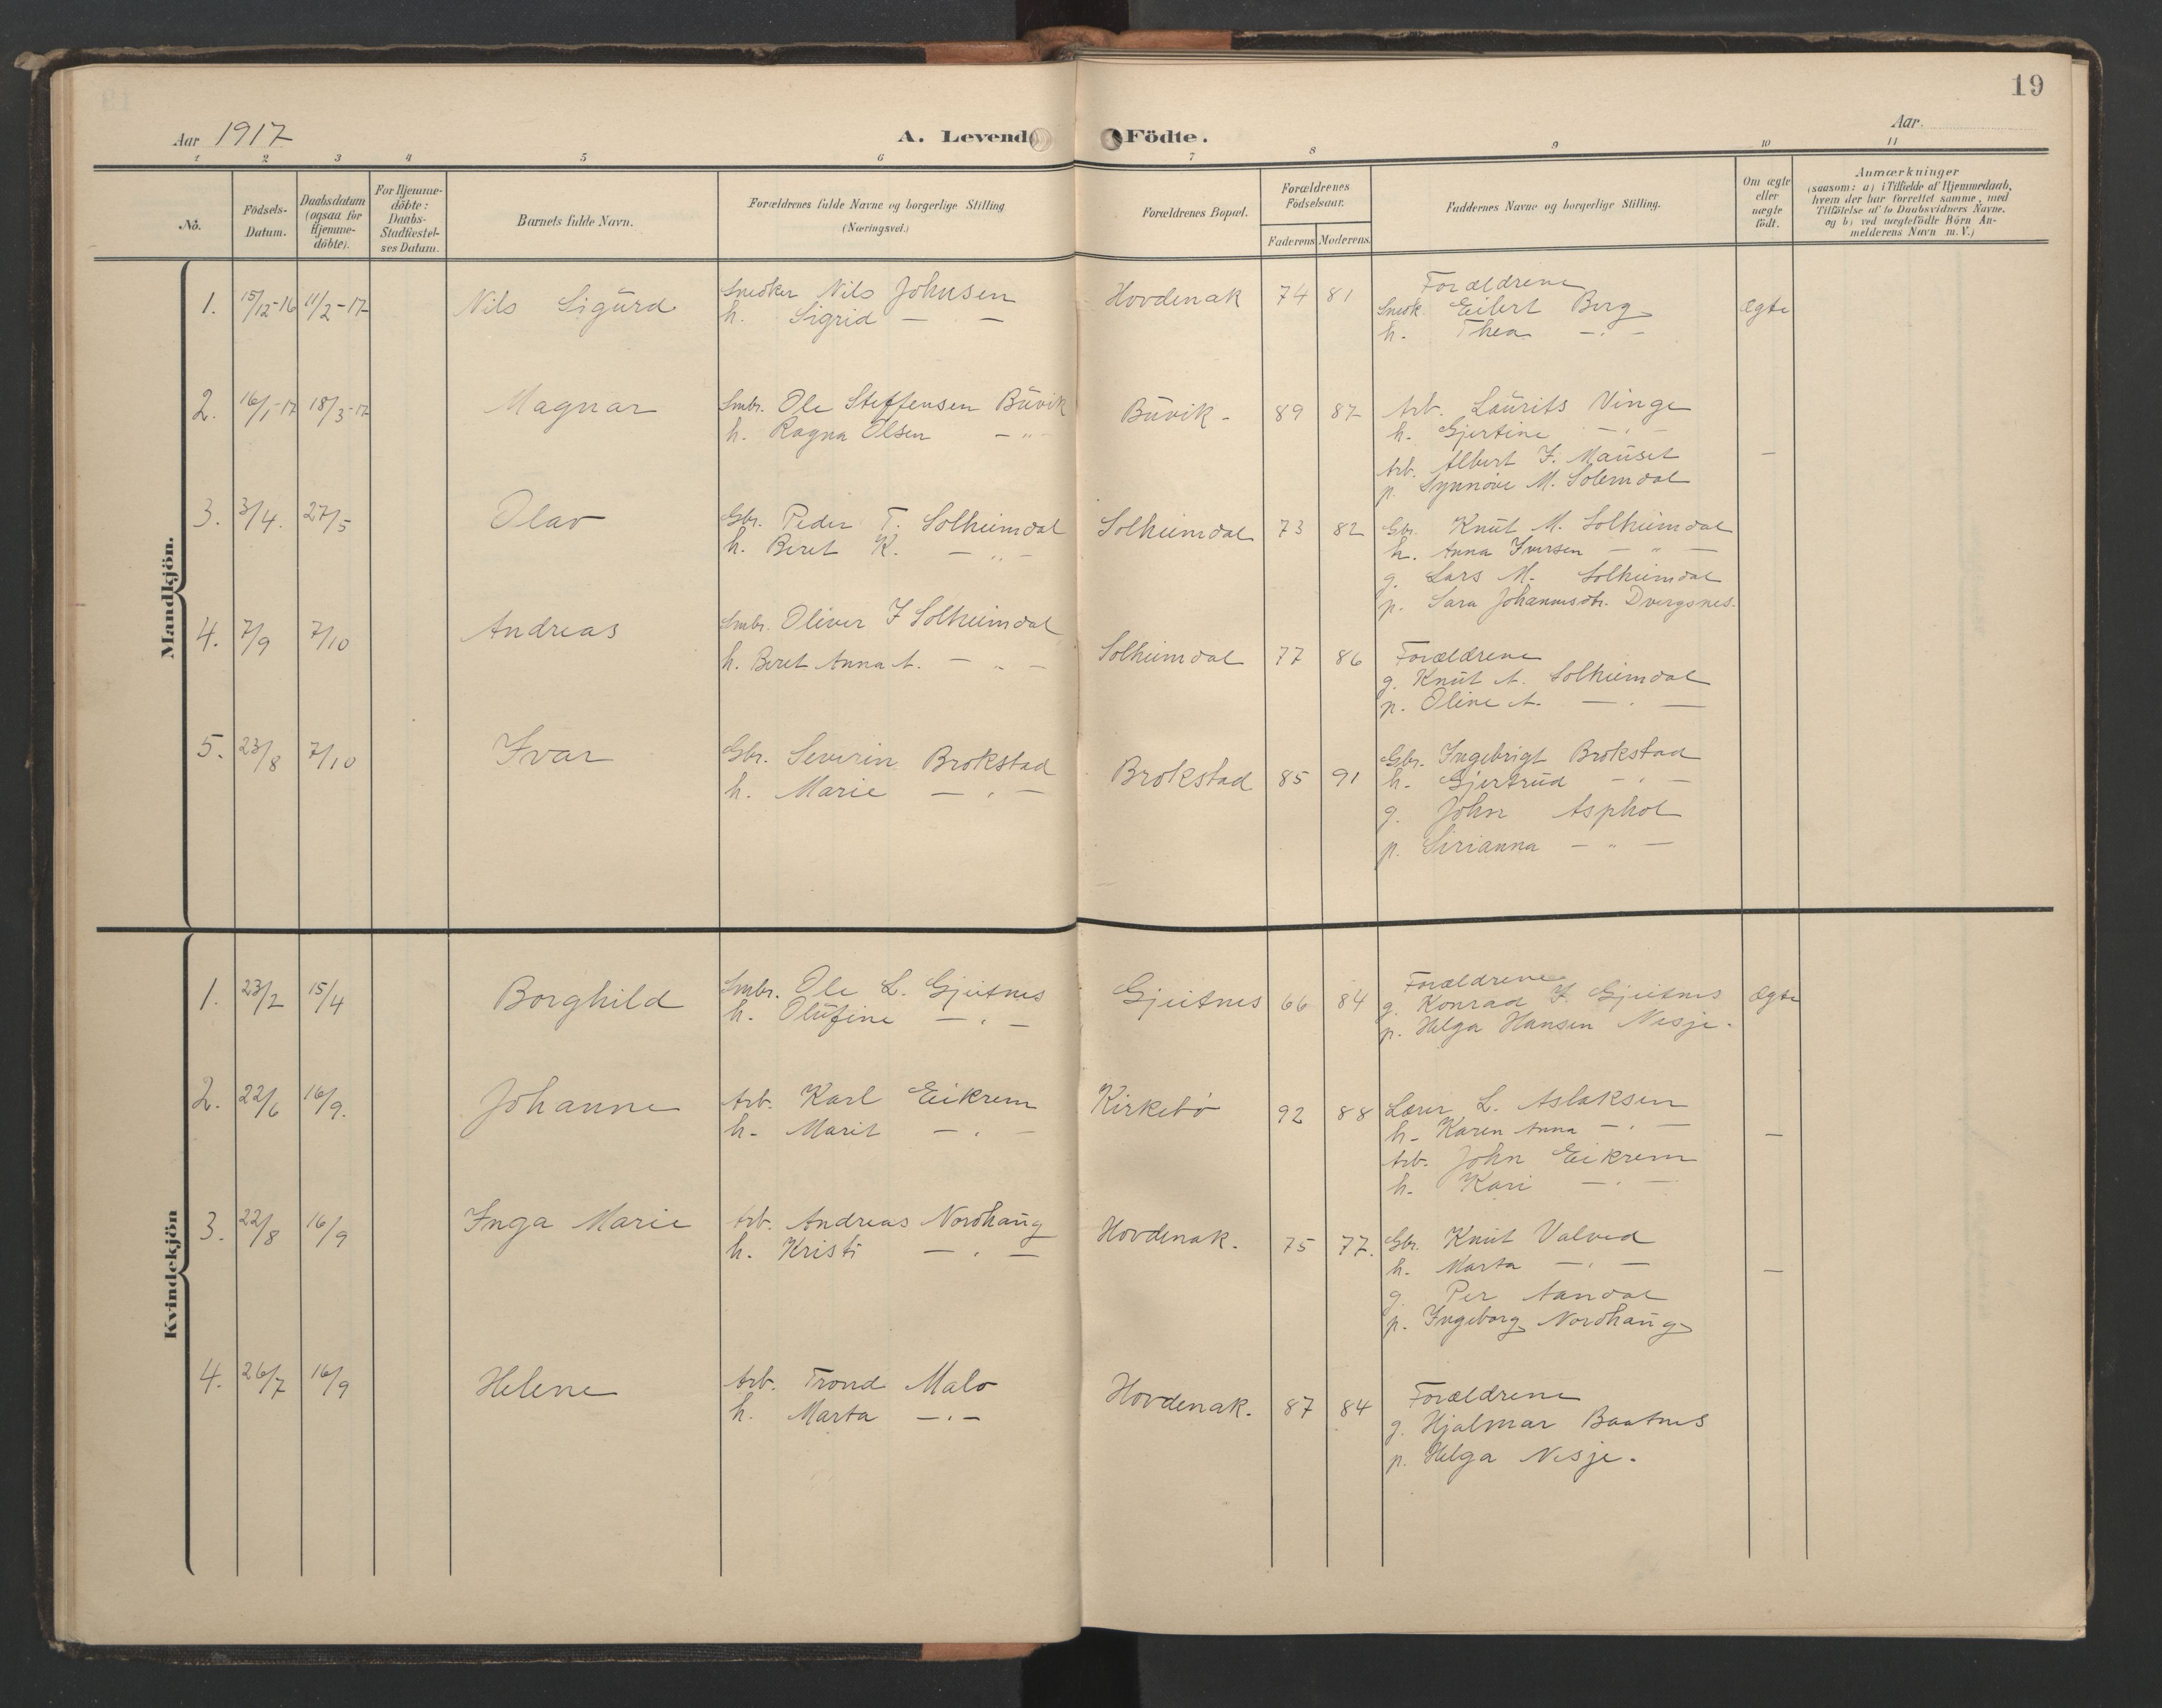 19
Aar 1917
A. Levende Födte.
Aar
1 2 3 4 5 6 7 8 9 10 11
No.
Födsels-Datum.
Daabsdatum (ogsaa for Hjemme-döbte).
For Hjemme-döbte: Daabs-Stadfæstel-ses Datum.
Barnets fulde Navn.
Forældrenes fulde Navne og borgerlige Stilling (Næringsvei.)
Forældrenes Bopæl.
Forældrenes Födselsaar.
Faderens Moderens
Faddernes Navne og borgerlige Stilling.
Om ægte eller uægte födt.
Anmærkninger
(saasom: a) i Tilfælde af Hjemmedaab,
hvem der har forrettet samme, med
Tilföielse af to Daabsvidners Navne.
og b) ved uægtefödte Börn An-
melderens Navn m. V.)
Mandkjön.
1. 15/12-16 11/2-17 Nils Sigurd Snedker Nils Johnsen Hovdenak 74 81 Forældrene
h. Sigrid — — Snedk. Eilert Berg ægte
h. Thea — . —
2. 16/1-17 18/3-17 Magnar Smbr. Ole Steffensen Buvik Buvik - 89 87 Arb. Laurits Vinge
h. Ragna Olsen — " — h. Gjertine — . —
Arb. Albert J. Mauset —
p. Synnöve M. Solemdal
3. 3/4. 27/5 Olav Gbr. Peder T. Solheimdal Solheimdal 73 82 Gbr. Knut M. Solheimdal
h. Beret K. — " — h. Anna Iversen — " —
g. Lars M. Solheimdal
p. Sara Johannesdtr. Dvergsnes.
4. 7/9 7/10 Andreas Smbr. Oliver J Solheimdal
h. Beret Anna A. — " — Solheimdal 77 86 Forældrene
g. Knut A. Solheimdal
p. Oline A. — . —
5. 23/8 7/10 Ivar Gbr. Severin Brokstad Brokstad 85 91 Gbr. Ingebrigt Brokstad
h. Marie — . — h. Gjertrud — . —
g. John Asphol
p. Serianna — " —
Kvindekjön
1. 23/2 15/4 Borghild Smbr. Ole L. Gjeitnes Gjeitnes 66 84 Forældrene
h. Olufine — . — g. Konrad J. Gjeitnes ægte
p. Helga Hansen Nesje.
2. 22/6 16/9. Johanne Arb. Karl Eikrem Kirkebö 92 88 Lærer L. Aslaksen
h. Marit — . — h. Karen Anna — . — —
Arb. John Eikrem
h. Kari — . —
3. 22/8 16/9 Inga Marie Arb. Andreas Nordhaug Hovdenak. 75 77. Gbr. Knut Valved
h. Kristi — . — h. Marta — . — —
g. Per Aandal
p. Ingeborg Nordhaug
4. 26/7 16/9 Helene Arb. Trond Malo Hovdenak. 87 84 Forældrene
h. Marta — . — g. Hjalmar Baatnes
p. Helga Nesje.